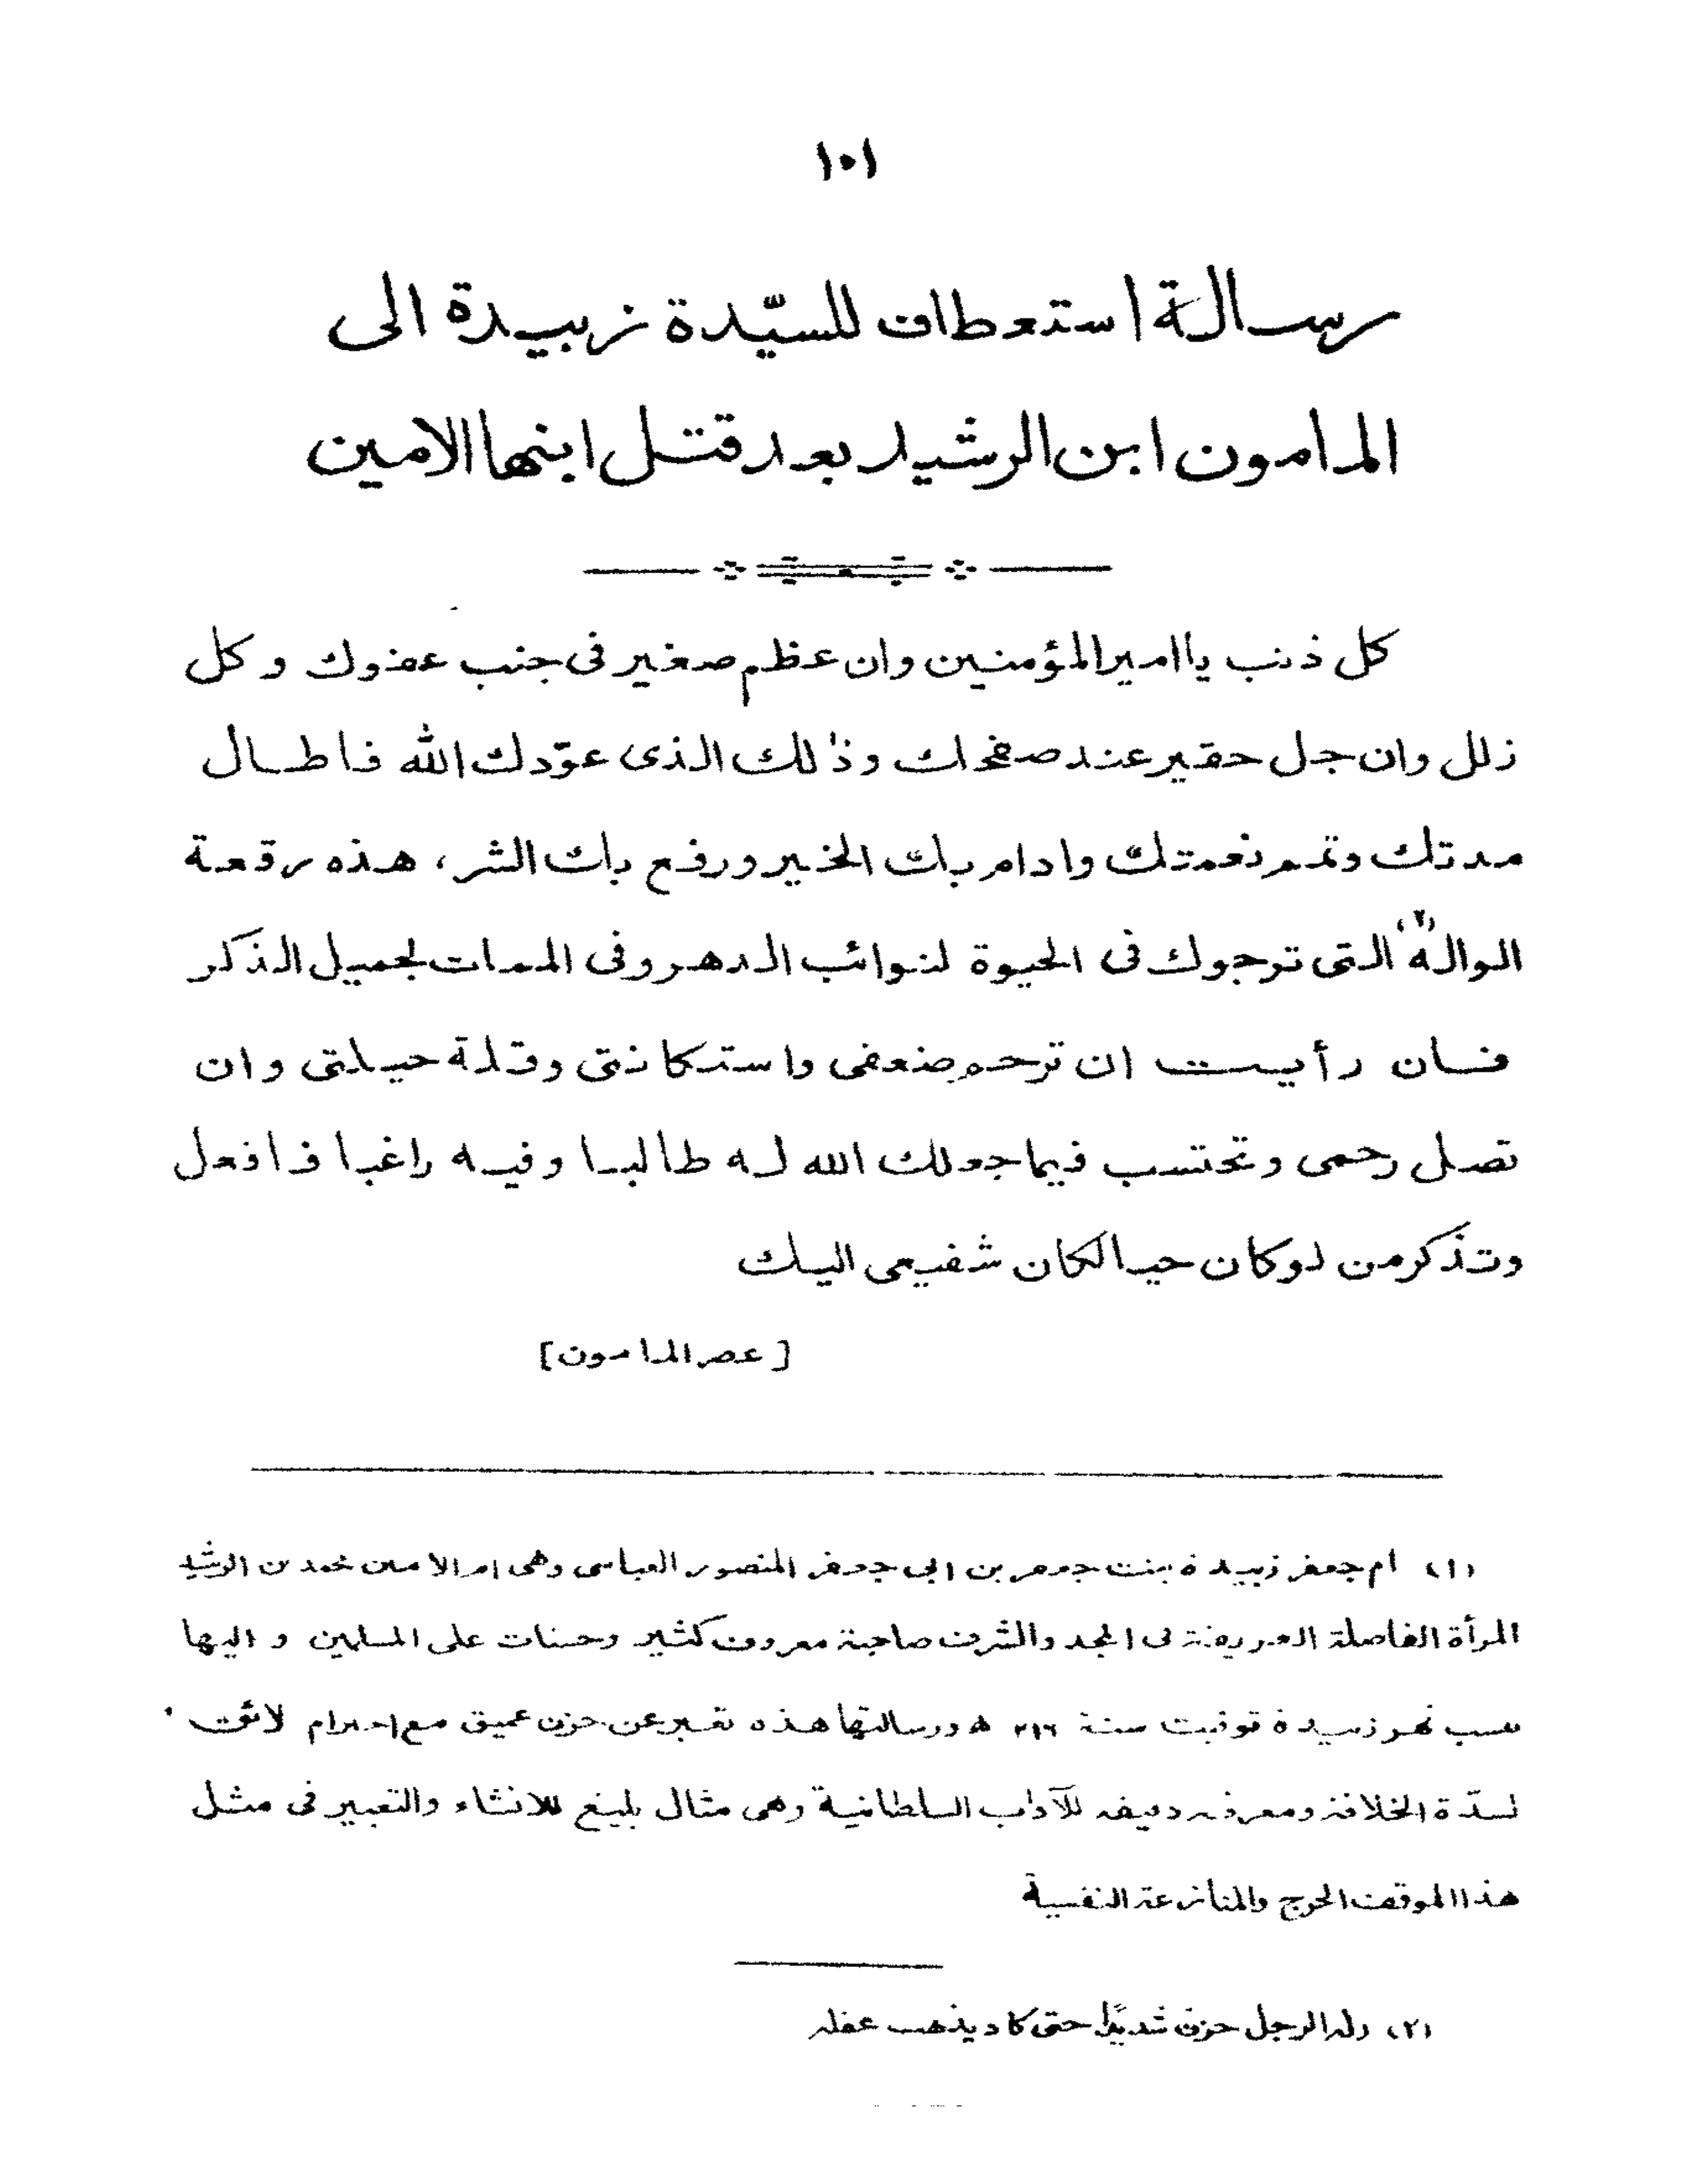 ١٠١
رسالة استعطاف للسيّدة زبيدة الى
المامون ابن الرشيد بعد قتل ابنها الامين
كل ذنب يا امير المؤمنين وان عظم صغير فى جنب عفوك وكل
زلل وان جل حقير عند صفحك وذٰلك الذى عوّدك الله فاطال
مدتك وتمم نعمتك وادام بك الخير ورفع بك الشر، هذه رقعة
الواله (٢) التى ترجوك فى الحيوة لنوائب الدهر وفى الممات لجميل الذكر
فان رأيت ان ترحم ضعفى واستكانتى وقلة حيلتى وان
تصل رحمى وتحتسب فيما جعلك الله له طالبا وفيه راغبا فافعل
وتذكر من لو كان حيا لكان شفيعى اليك
[عصر المامون]
(١) ام جعفر زبيدة بنت جعفر بن ابى جعفر المنصور العباسى وهى ام الامين محمد بن الرشيد
المرأة الفاضلة العريقة فى المجد والشرف صاحبة معروف كثير وحسنات على المسلمين واليها
نسب نهر زبيدة توفيت سنة ٢١٦ ھ ورسالتها هذه تعبر عن حزن عميق مع احترام لائق
لسدّة الخلافة ومعرفة دقيقة للآداب السلطانية وهى مثال بليغ للانشاء والتعبير فى مثل
هذا الموقف الحرج والمنازعة النفسية
(٢) وله الرجل حزن شديدًا حتى كاد يذهب عقله